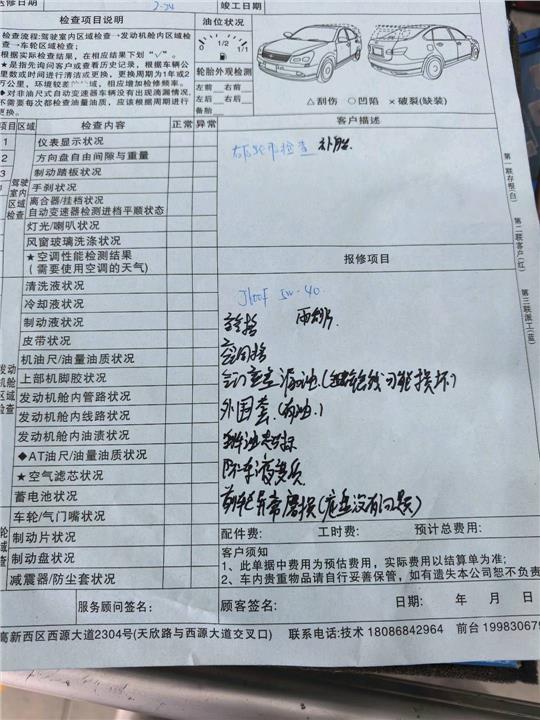 送修日期
7-24
竣工日期
检查项目说明
油位状况
检查流程:驾驶室内区域检查→发动机舱内区域检
查→车轮区域检查;
根据实际检查结果,在相应结果下划“√”。
★是指先询问客户或查看历史记录,根据车辆公
里数或时间进行清洁或更换,更换周期为1年或2
万公里,环境较差的区域,相应增加检修频率。
◆对非油尺式自动变速器车辆没有出现滴漏情况,
不需要每次都检查油量油质,应该根据周期进行
更换。
0 1/2 1
轮胎外观检测
左前 右前
左后 右后
备胎
△刮伤 ○凹陷 ×破裂(缺装)
项目 区域 检查内容 正常 异常
客户描述
检查 补胎.
驾驶室内区域检查
1 仪表显示状况
2 方向盘自由间隙与重量
3 制动踏板状况
手刹状况
离合器/挂档状况
自动变速器检测进档平顺状态
灯光/喇叭状况
风窗玻璃洗涤状况
★空调性能检测结果
(需要使用空调的天气)
报修项目
发动机舱区域检查
清洗液状况
冷却液状况
制动液状况
皮带状况
机油尺/油量油质状况
上部机脚胶状况
发动机舱内管路状况
发动机舱内线路状况
发动机舱内油渍状况
◆AT油尺/油量油质状况
★空气滤芯状况
蓄电池状况
车轮/气门嘴状况
制动片状况
制动盘状况
减震器/防尘套状况
5w-40
雨刮片.
空调格
外围套(有油.)
前轮异常磨损(底盘没有问题)
第一联存根(白)
第二联客户(红)
第三联派工(蓝)
配件费: 工时费: 预计总费用:
客户须知
1、此单据中费用为预估费用,实际费用以结算单为准;
2、车内贵重物品请自行妥善保管,如有遗失本公司恕不负责
服务顾问签名:
顾客签名:
日期: 年 月 日
高新西区西源大道2304号(天欣路与西源大道交叉口) 联系电话:技术 18086842964 前台 19983067